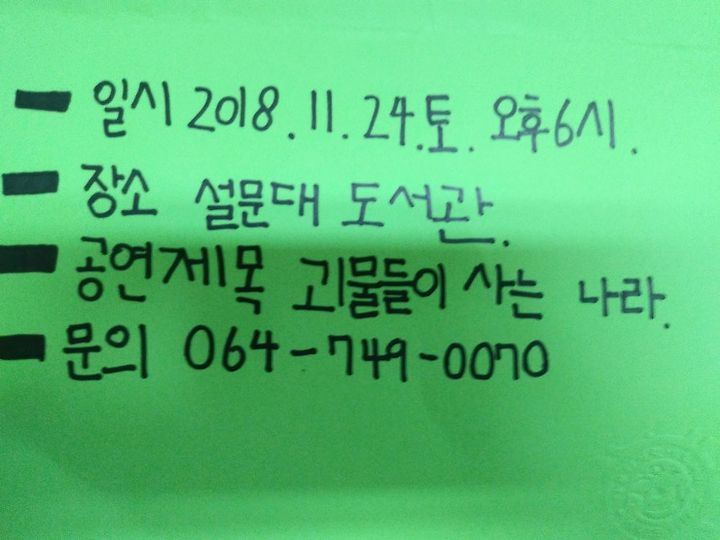 - 일시 2018. 11. 24. 토. 오후 6시.
- 장소 설문대 도서관.
- 공연제목 괴물들이 사는 나라.
- 문의 064-749-0070